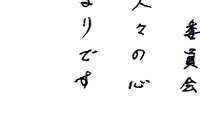 委員会
人々の心
よりです